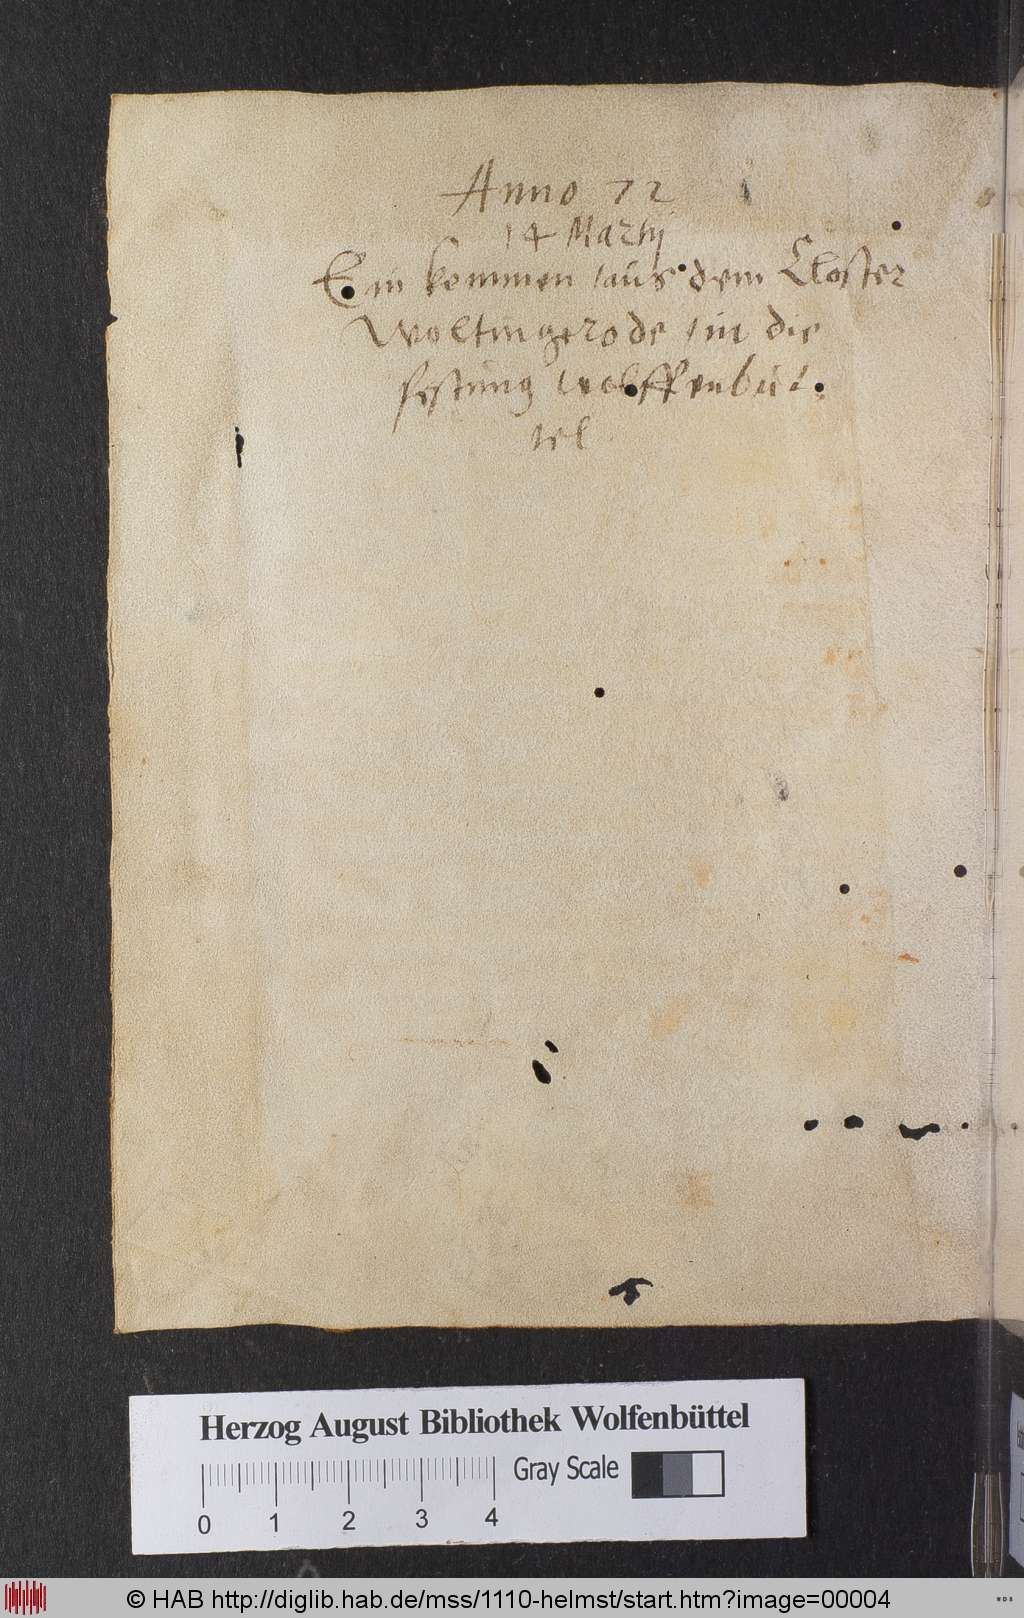 Anno 72
14 Martij
Ein kommen /aus dem Closter
Woltingerode /in die
festung Wolffenbüt.
tel
Herzog August Bibliothek Wolfenbüttel
Gray Scale
0 1 2 3 4
© HAB http://diglib.hab.de/mss/1110-helmst/start.htm?image=00004